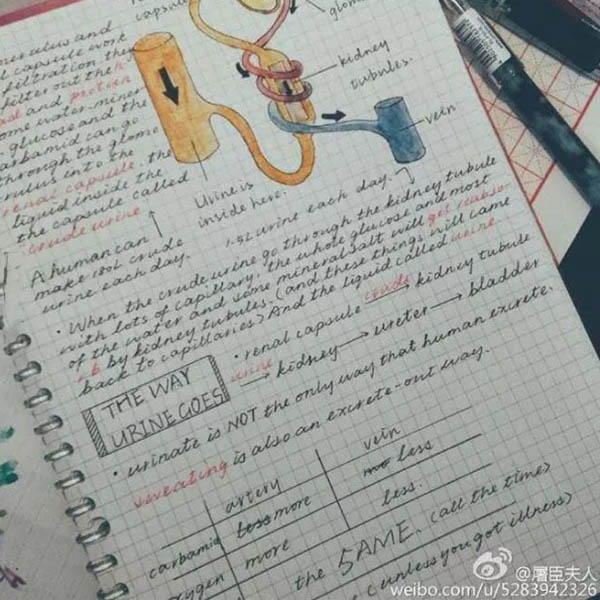 capsule
glom
merulus and
l capsule work
filtration they
filter out the
and protein
ome water, miner
glucose and the
arbamid can go
through the glome
rulus into the
renal capsule, the
liquid inside the
the capsule called
crude urine
kidney
tubules.
vein
Urine is
inside here.
A human can
make 180L crude
urine each day.
1.5L urine each day.
· When the crude urine go through the kidney tubule
with lots of capillary, the whole glucose and most
of the water and some mineral salt will get reabso-
rb by kidney tubules. (and these things will came
back to capillaries) And the liquid called urine.
THE WAY
URINE GOES
· renal capsule crude kidney tubule
urine kidney ureter bladder
· urinate is NOT the only way that human excrete.
sweating is also an excrete-out way.
artery vein
carbamid less more more less
oxygen more less.
the SAME. (all the time)
(unless you got illness)
@屠臣夫人
weibo.com/u/5283942326